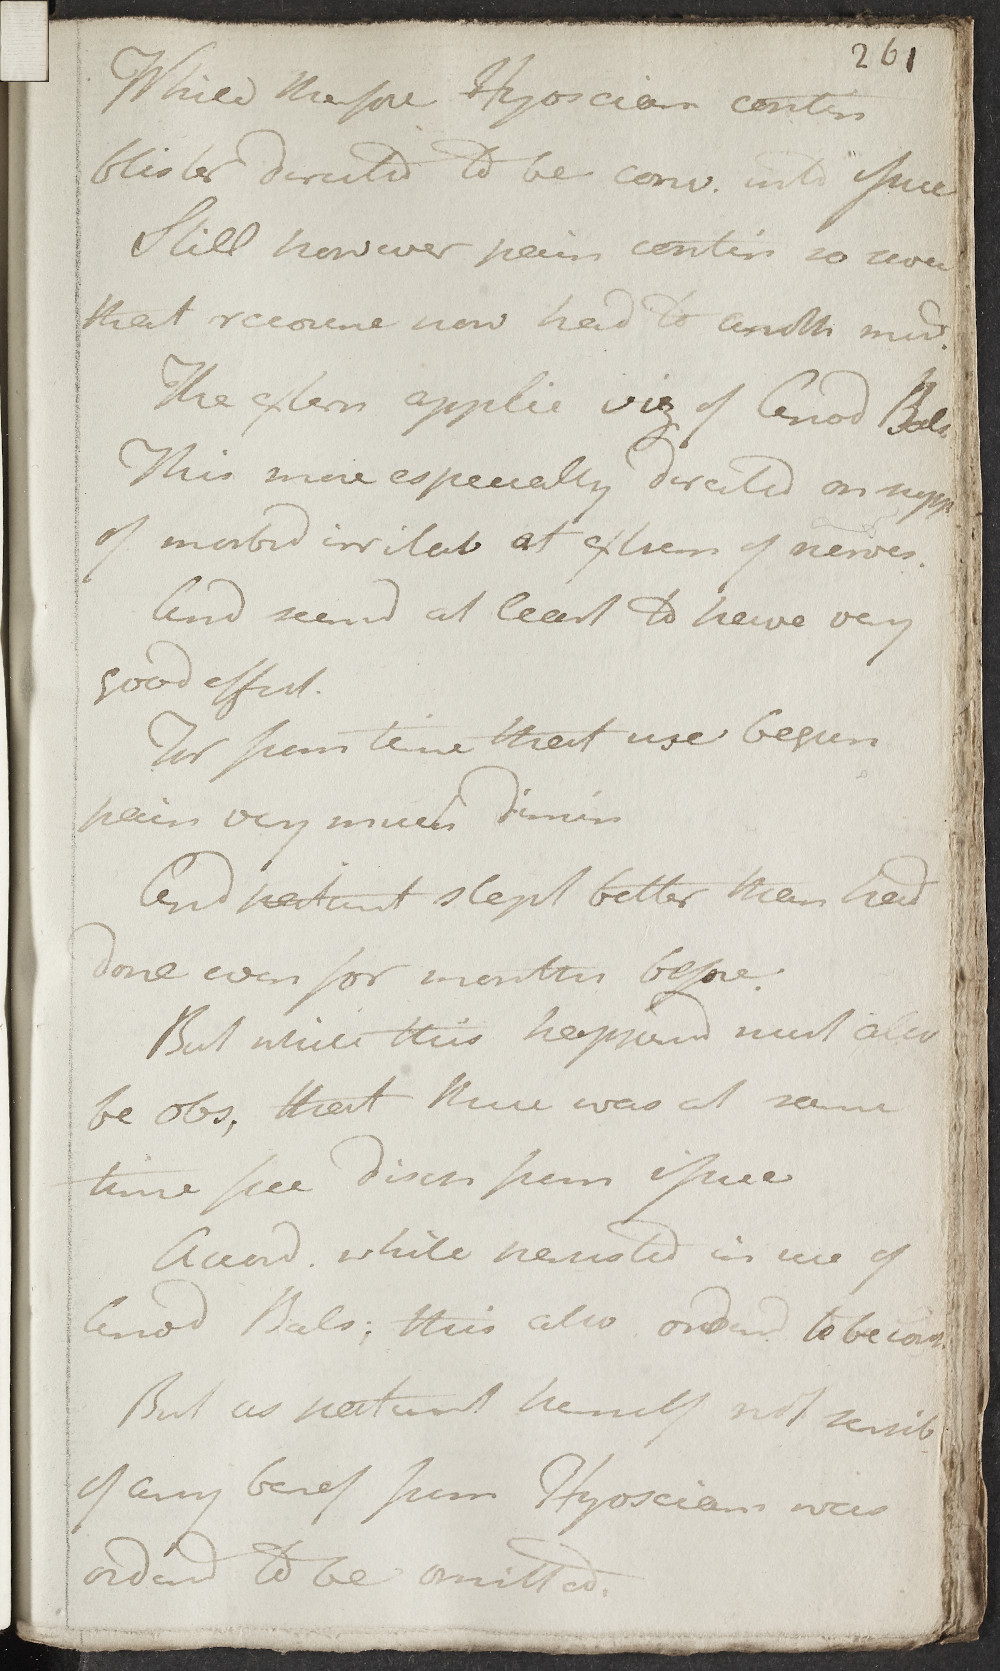 261
While therefore Hyosciam contin
blister directed to be conv. into issue
Still however pain contin so
that recourse now had to anoth med.
The extern applic viz of Anod Bals.
This more especially directed on supp
of morbid irritab at extrem of nerves.
And seemd at least to have very
good effect.
For from time that use begun
pain very much dimin
And patient slept better than had
done even for months before.
But while this happend must also
be obs, that there was at same
time free disch from issue
Accord. while persisted in use of
Anod Bals; this also orderd to be con.
But as patient herself not sensib
of any benef from Hyosciam was
orderd to be omitted.